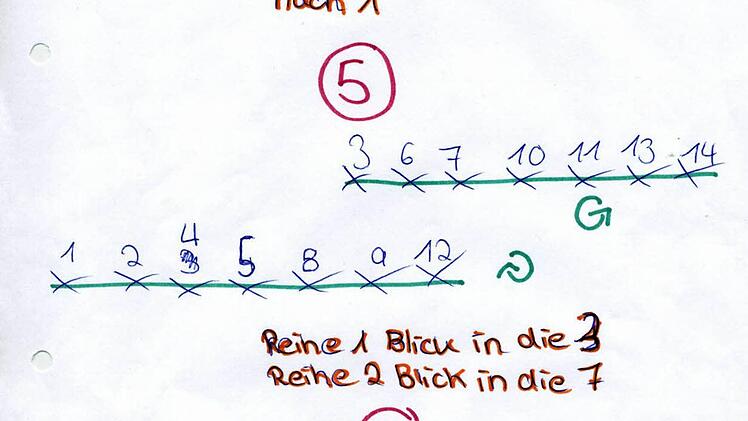 nach 1
5
3 6 7 10 11 13 14
1 2 4 5 8 9 12
Reihe 1 Blick in die 3
Reihe 2 Blick in die 7